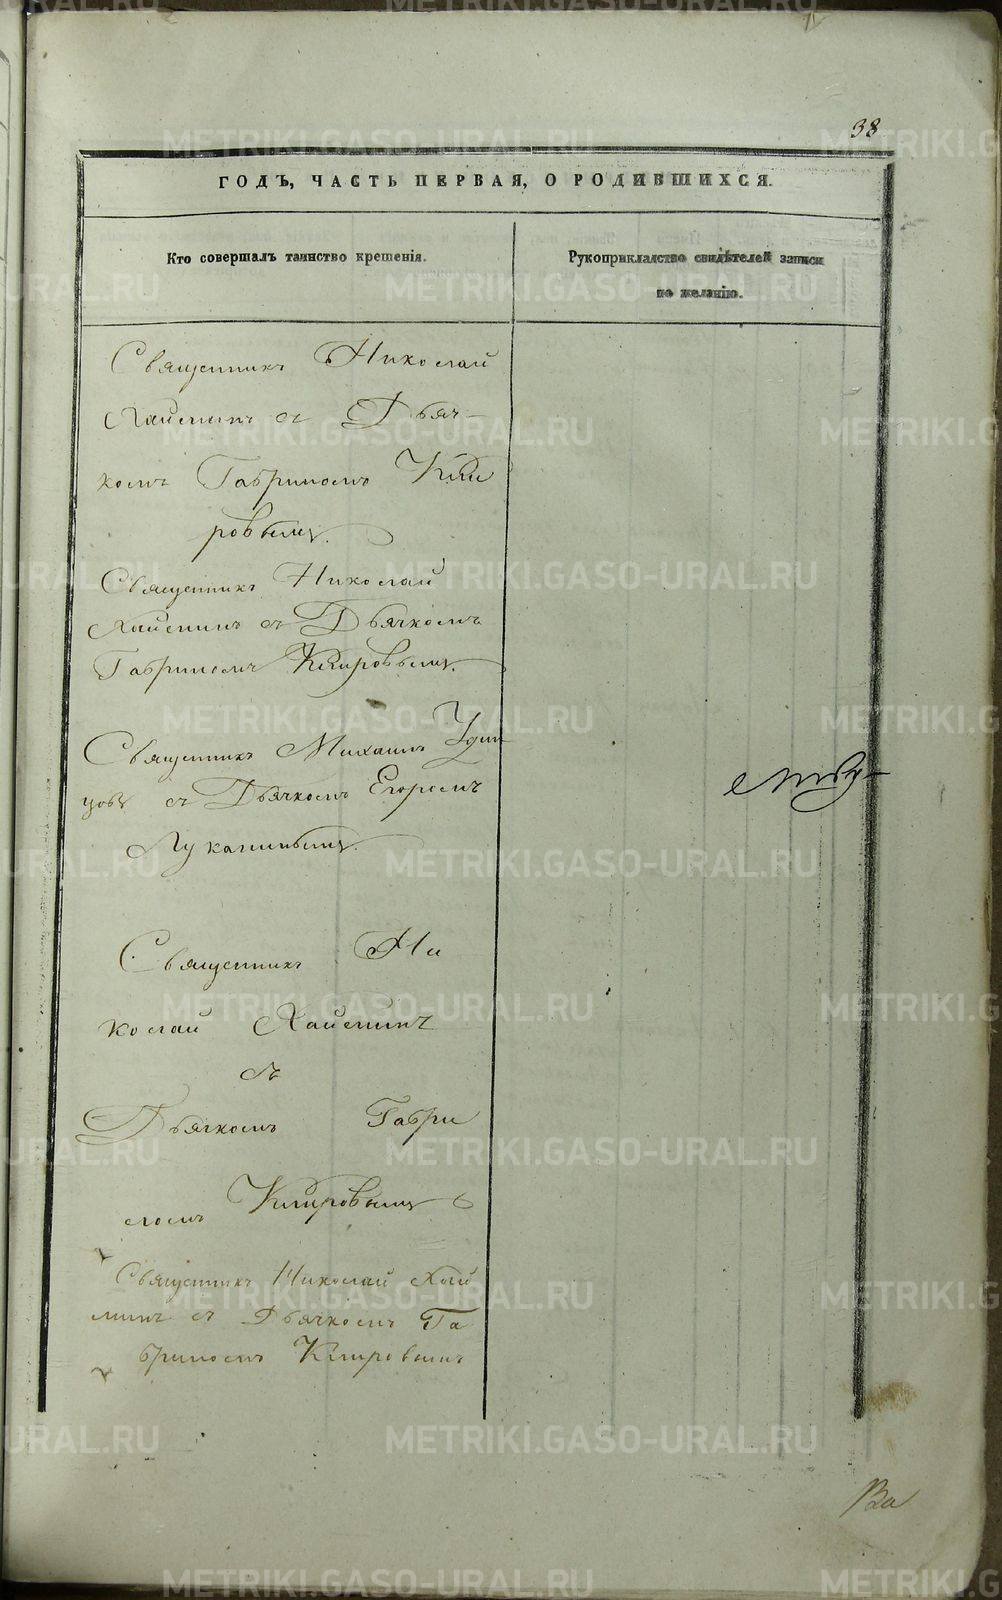 38
ГОДЪ, ЧАСТЬ ПЕРВАЯ, О РОДИВШИХСЯ.
Кто совершалъ таинство крещенія.
Рукоприкладство свидѣтелей записи
по желанію.
Священникъ Николай
Хайминъ съ Дьяч-
комъ Гавриломъ Кли
ровымъ.
Священникъ Николай
Хайминъ съ Дьячкомъ
Гавриломъ Клировымъ.
Священникъ Михаилъ Удин
цовъ съ Дьячкомъ Егоромъ
Луканинымъ.
Священникъ Ни
колай Хайминъ
съ
Дьячкомъ Гаври
ломъ Клировымъ
Священникъ Николай Хай
минъ съ Дьячкомъ Га
вриломъ Клировымъ
METRIKI.GASO-URAL.RU